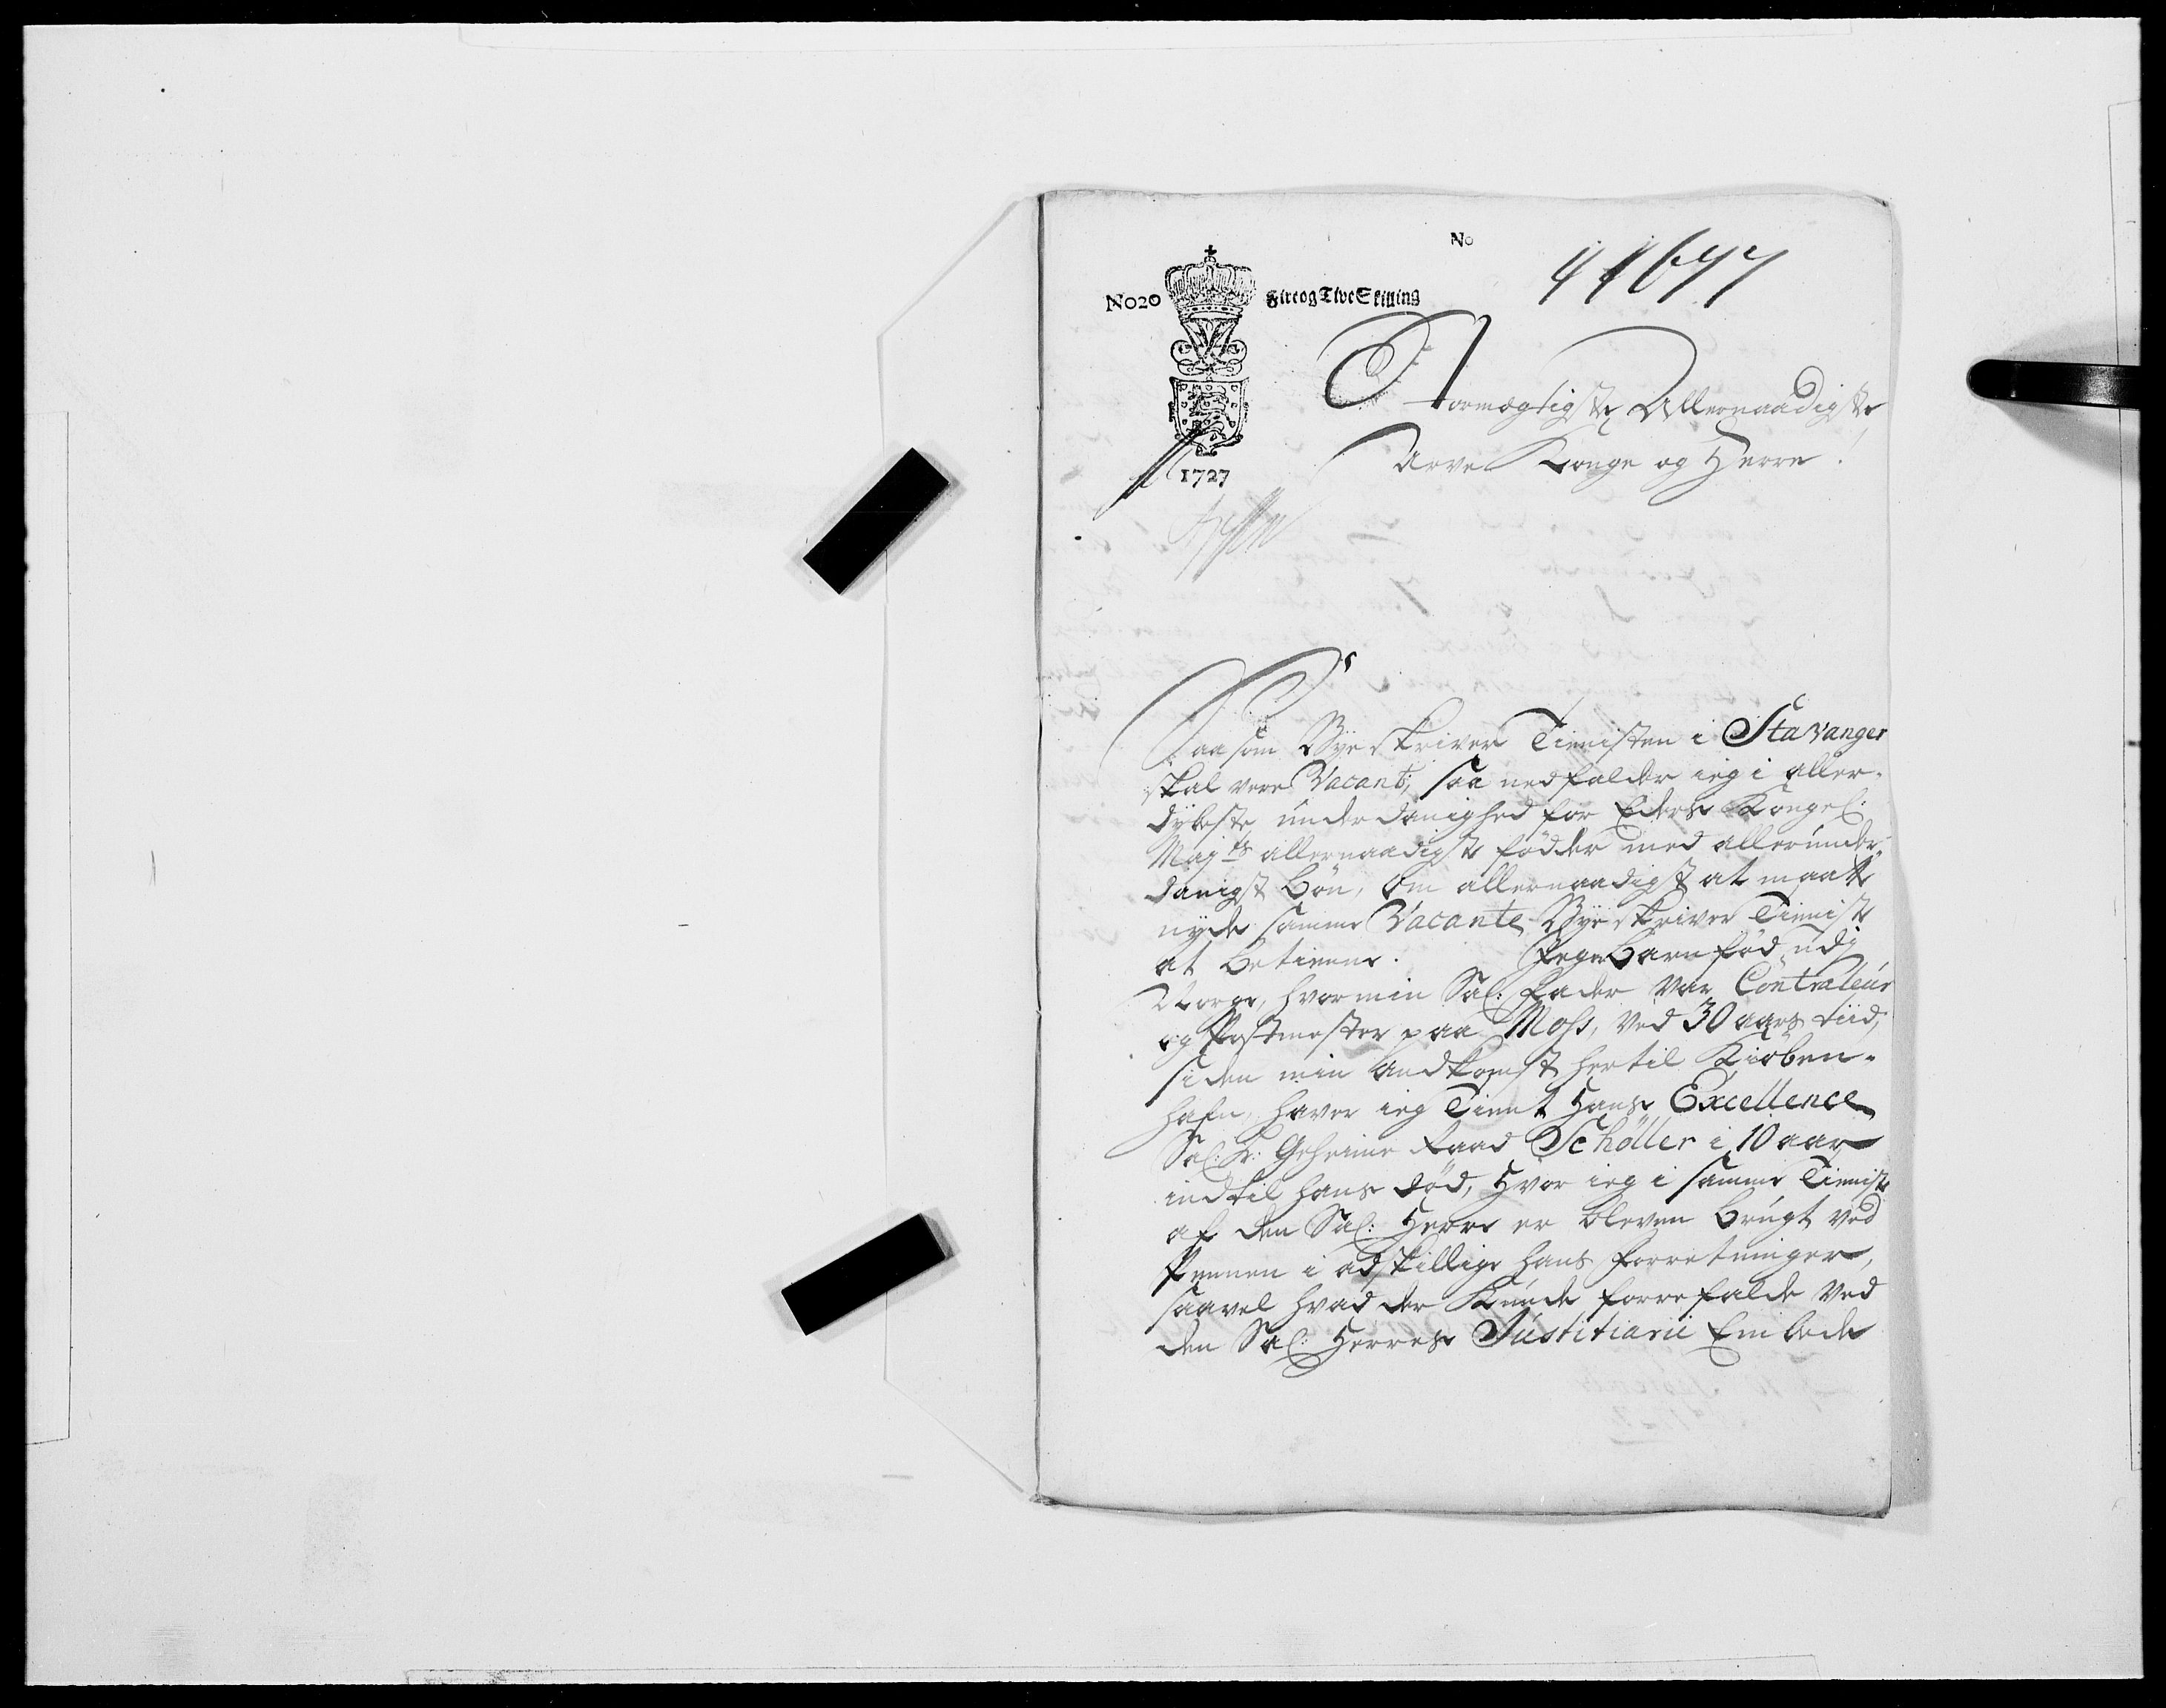 No
41677
No20
Fire og Tive Skilling
1727
Stormægtigste Allernaadigste
Arve Konge og Herre!
Saasom Byeskriver Tienisten i Stavanger
skal være Vacant; saa nedfalder ieg i aller-
dybeste underdanighed for Eders Kongel:
Majts allernaadigste födder med allerunder-
danigst bön, om allernaadigst at maatte
nyde samme Vacante Byeskriver Tieniste
at betienne. Jeg er barnföd udj
Norge, hvor min Sal: Fader var Contraleur
og Postmester paa Moss, ved 30 aars tiid,
siden min andkomst hertil Kiöben-
hafn, haver ieg Tient Hans Excellence
Sal: Hr: Geheime Raad Schöller i 10 aar
indtil hans död, Hvor ieg i samme Tieniste
af den Sal: Herre er bleven brugt ved
Pennen i adskillige hans forretninger,
saavel hvad der kunde forrefalde ved
den Sal: Herres Justitiarii Embede